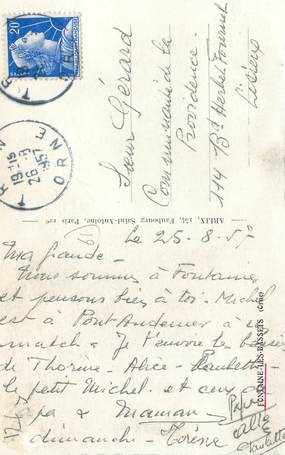 20
19-15
26-8
1957
ORNE
Sœur Gérard
Communauté de la
Providence
114 Bd Herbet Fournet
Lisieux
ARLIX, 154, Faubourg Saint-Antoine, Paris 12e
Le 25-8-57
Ma grande -
Nous sommes à Fontaine
et pensons bien à toi - Michel
est à Pont Audemer à un
match & Je t'envoie les baisers
de Thérèse - Alice - Paulette
le petit Michel et ceux de
Papa & Maman
dimanche - Thérèse
Papa
Alice
Paulette
FONTAINE-LES-BASSETS (Orne)